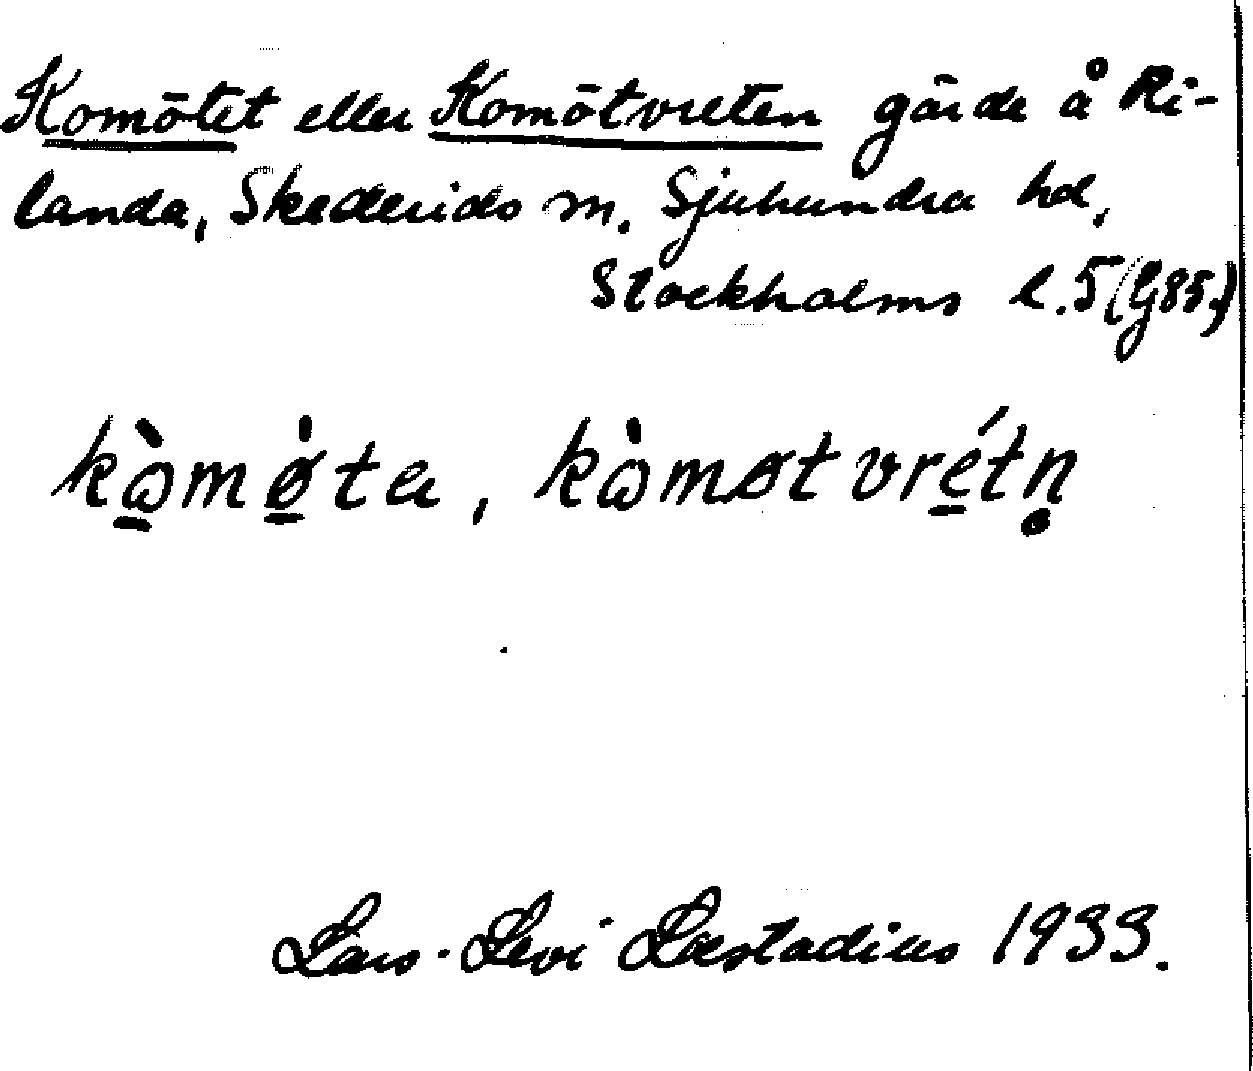 Komötet eller Komötvreten gärde å Ri-
landa, Skederids sn. Sjuhundra hd,
Stockholms l. 5 (G85.)
kò̠mø̠̀ta, kòmøtvré̠tṇ
Lars-Levi Læstadius 1933.